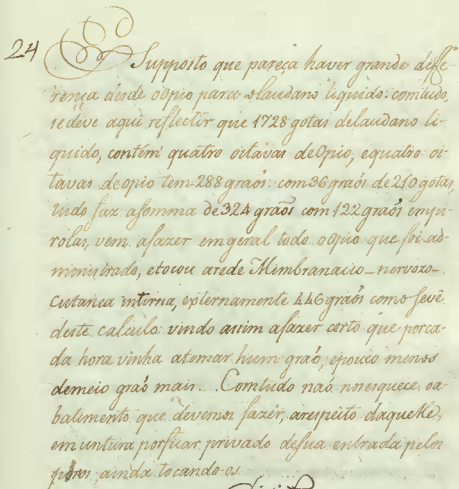 24
Supposto que pareça haver grande diffe-
rença desde o opio para o laudano liquido: comtudo,
se deve aqui reflectir que 1728 gotas de laudano li-
quido, contém quatro oitavas de Opio, e quatro oi-
tavas de opio tem 288 graõs: com 36 graõs de 210 gotas,
tudo faz a somma de 324 graõs com 122 graõs em pi-
rolas, vem a fazer em geral todo o opio que foi ad-
monistrado, e tocou a rede Membranacio-nervozo-
cutanea interna, externamente 446 graõs como se vê
deste calculo: vindo assim a fazer certo que por ca-
da hora vinha a tomar hum graõ, e pouco menos
de meio graõ mais. Comtudo naõ nos esquece, o a-
batimento que devemos fazer, a respeito daquelle,
em untura por ficar privado de sua entrada pelos
póros, ainda tocando-os